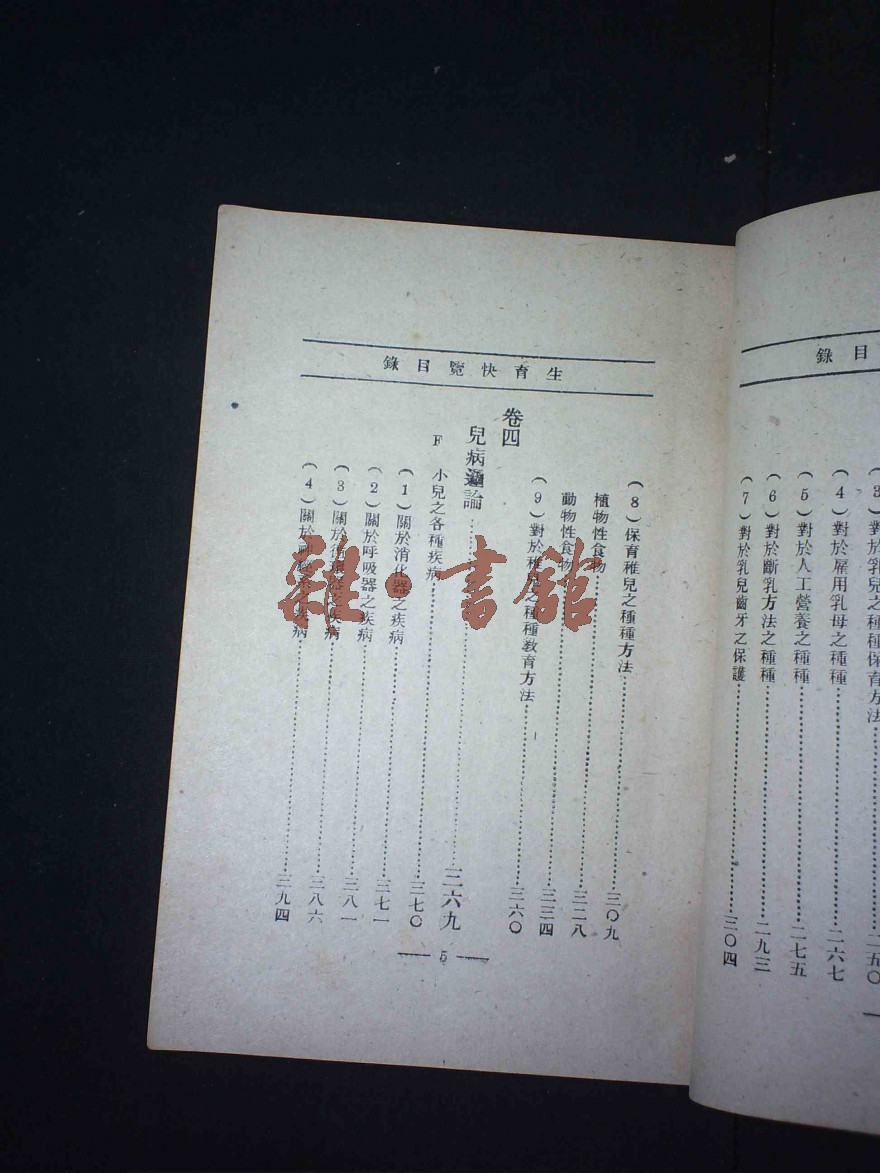 目錄
(3)對於乳兒之種種保育方法……二五〇
(4)對於雇用乳母之種種……二六七
(5)對於人工營養之種種……二七五
(6)對於斷乳方法之種種……二九三
(7)對於乳兒齒牙之保護……三〇四
生育快覽目錄
(8)保育稚兒之種種方法……三〇九
植物性食物……三二八
動物性食物……三三四
(9)對於稚兒之種種教育方法……三六〇
卷四
兒病論……三六九
F 小兒之各種疾病……三七〇
(1)關於消化器之疾病……三七一
(2)關於呼吸器之疾病……三八一
(3)關於循環器之疾病……三八六
(4)關於疾病……三九四
— 5 —
雜·書館